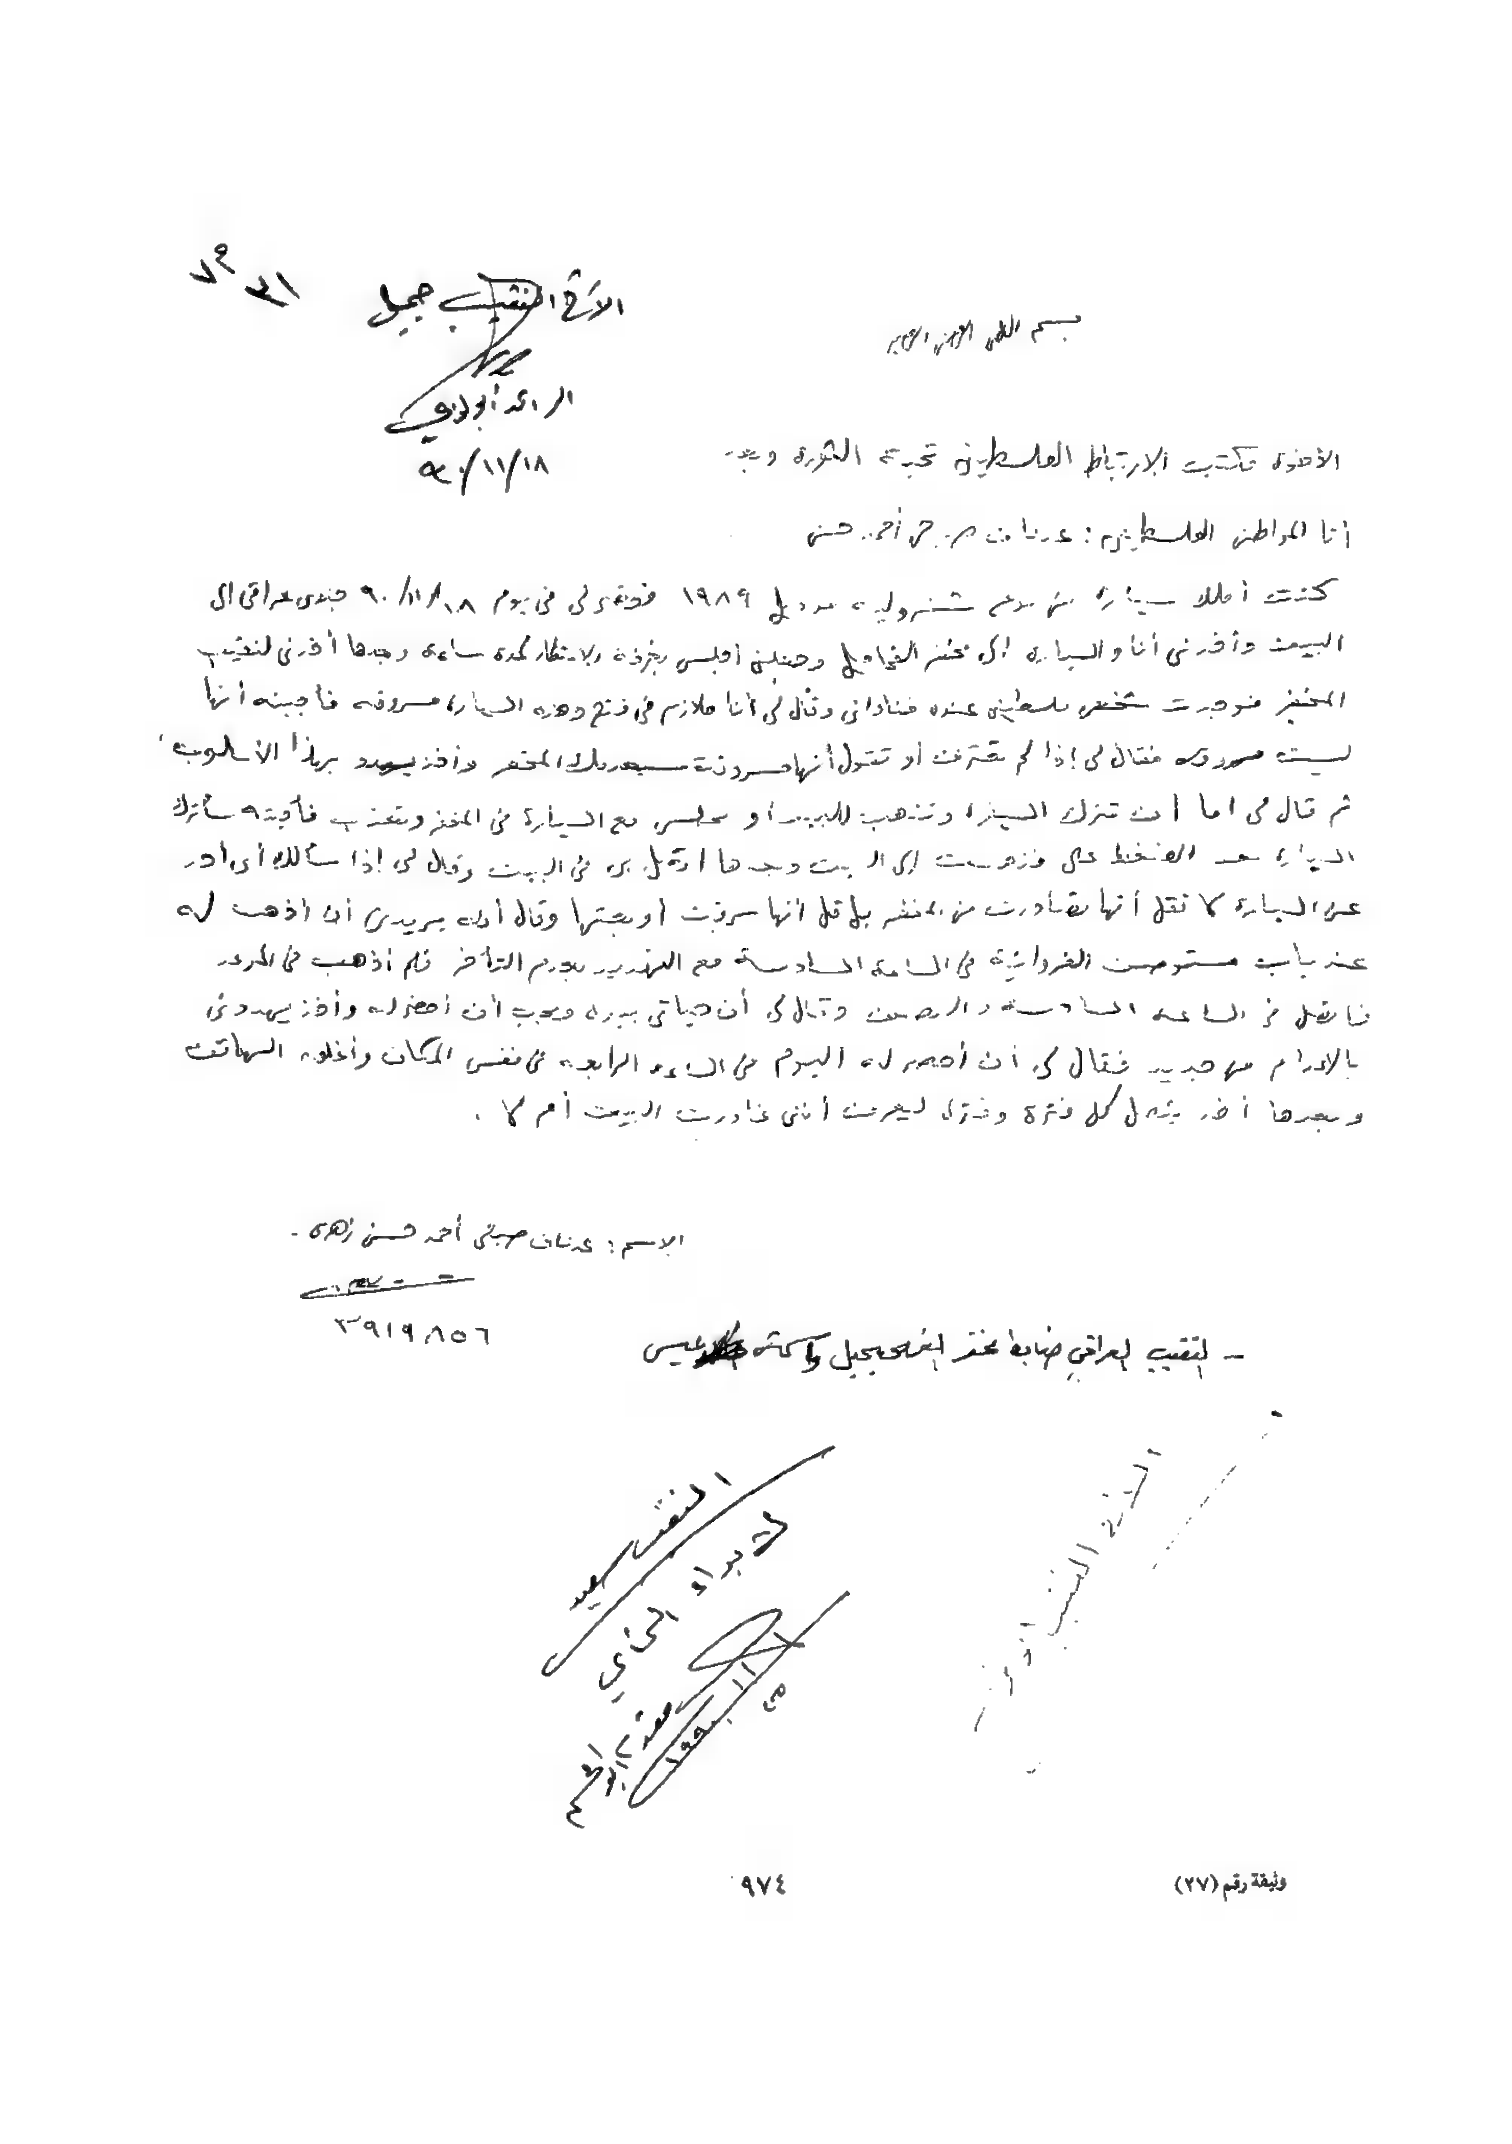 ٣١
الأخ النقيب جميل
بسم الله الرحمن الرحيم
الرائد أبو
٩٠/١١/١٨
الأخوة مكتب الإرتباط الفلسطيني تحية الثورة وبعد
أنا المواطن الفلسطيني : عدنان صبحي أحمد حسن
كنت أملك سيارة من نوع شفروليه موديل ١٩٨٩ في يوم ٩٠/١١/٨ جندي عراقي الى
البيت وأخذني أنا والسيارة إلى مخفر الفحاحيل وجعلني أجلس بغرفة الإنتظار لمدة ساعة وبعدها أخذني لنقيب
المخفر فوجدت شخص فلسطيني عنده فناداني وقال لي أنا ملازم في فتح وهذه السيارة مسروقه فأجبته أنها
ليست مسروقه فقال لي إذا لم تعترف أو تقول أنها مسروقة المخفر وأخذ يهدد بهذا الأسلوب
ثم قال لي اما أن تترك السيارة وتذهب للبيت أو تجلس مع السيارة في المخفر وتعذب فأجبته سأترك
السيارة بعد الضغط علي فذهبت إلى البيت وبعدها اتصل بي في البيت وقال لي إذا سألك أي أحد
عن السيارة لا تقل أنها من المخفر بل قل أنها سرقت أو بعتها وقال أنه يريدني أن أذهب له
عند باب مستوصف الفروانية في الساعة السادسة مع التهديد بعدم التأخر فلم أذهب في الموعد
فاتصل في الساعة السادسة والنصف وقال لي أن حياتي بيده ويجب أن أحضر له وأخذ يهددني
بالإعدام من جديد فقال لي أن أحضر له اليوم في الساعة الرابعة في نفس المكان وأغلق الهاتف
وبعدها أخذ يتصل كل فترة وفترة ليعرف أنني غادرت البيت أم لا .
الإسم : عدنان صبحي أحمد حسن زهرة -
٣٩١٩٨٥٦
- النقيب العراقي ضابط مخفر الفحيحيل واسمه عيسى
النقيب
لإبداء الرأي
١١
١٩٩٠
الأخ النقيب
وثيقة رقم (٢٧)
٩٧٤